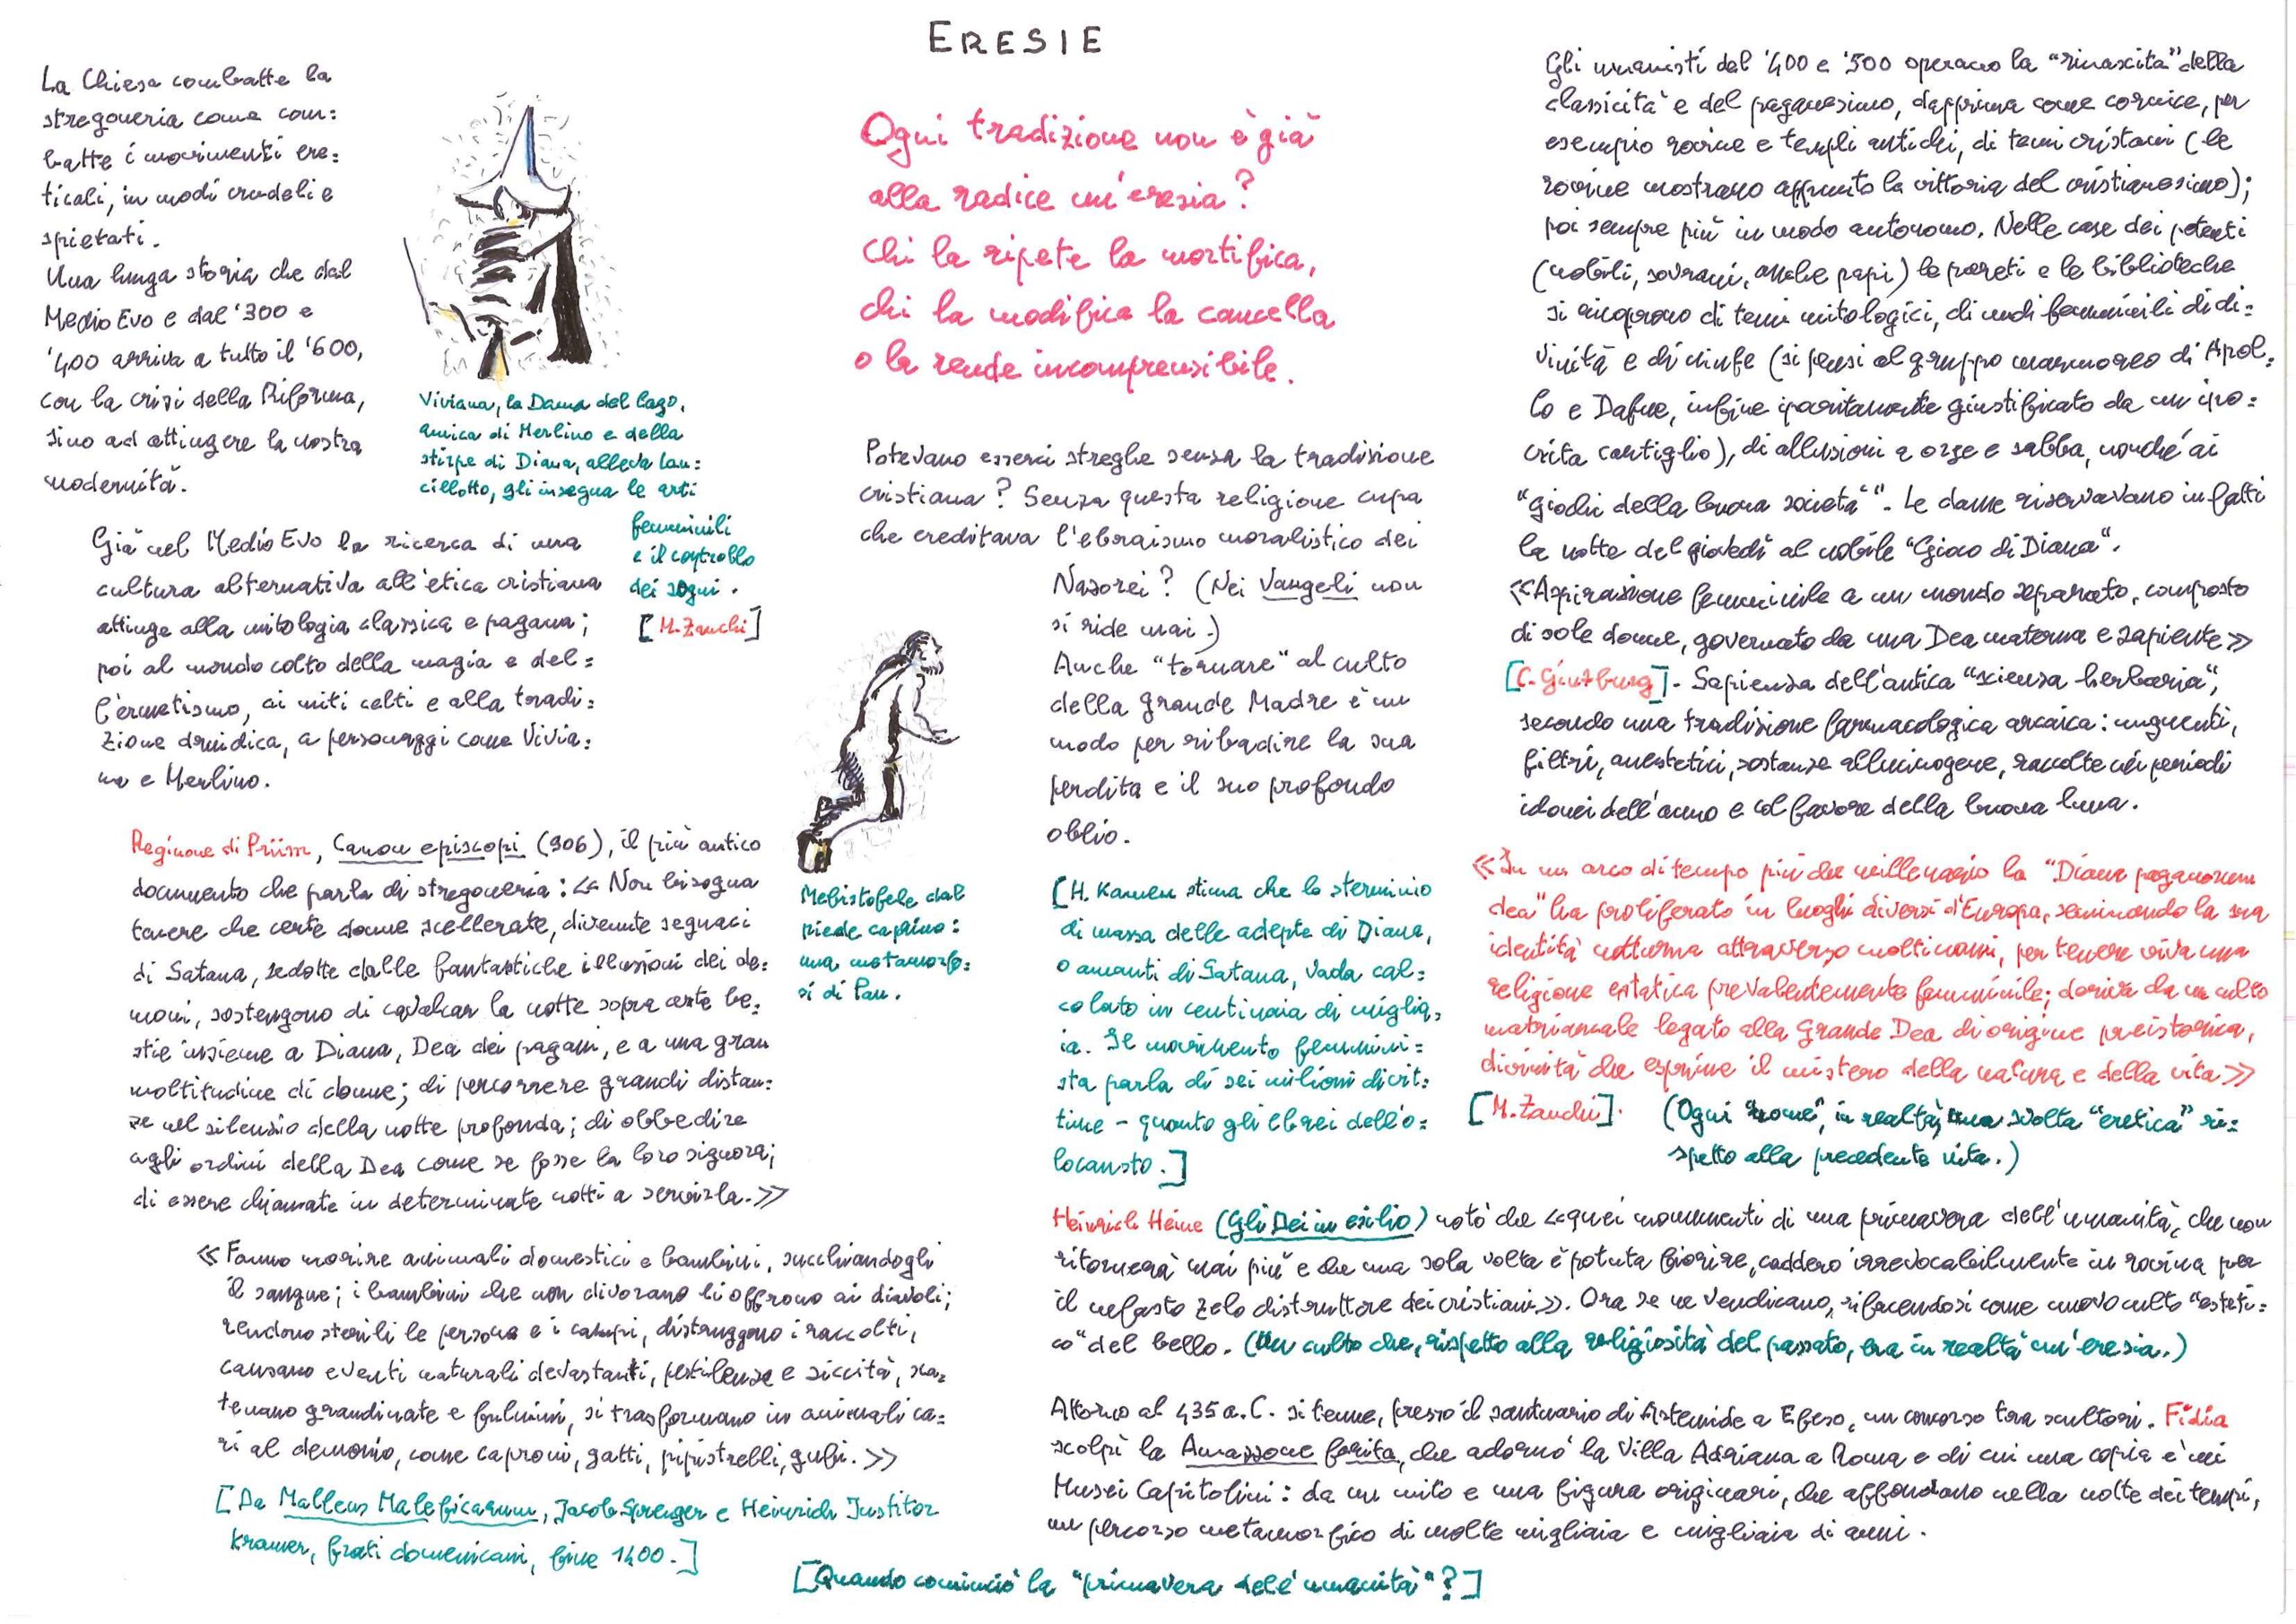 ERESIE
La Chiesa combatte la
stregoneria come com=
batte i movimenti ere=
ticali, in modi crudeli e
spietati.
Una lunga storia che dal
Medio Evo e dal '300 e
'400 arriva a tutto il '600,
con la crisi della Riforma,
sino ad attingere la nostra
modernità.
Viviana, la Dama del Lago,
amica di Merlino e della
stirpe di Diana, alleva Lan=
cillotto, gli insegna le arti
femminili
e il controllo
dei sogni.
[M. Zanchi]
Già nel Medio Evo la ricerca di una
cultura alternativa all'etica cristiana
attinge alla mitologia classica e pagana;
poi al mondo colto della magia e del=
l'ermetismo, ai miti celti e alla tradi=
zione druidica, a personaggi come Vivia=
na e Merlino.
Reginone di Prüm, Canon episcopi (906), il più antico
documento che parla di stregoneria: << Non bisogna
tacere che certe donne scellerate, divenute seguaci
di Satana, sedotte dalle fantastiche illusioni dei de=
moni, sostengono di cavalcar la notte sopra certe be=
stie insieme a Diana, Dea dei pagani, e a una gran
moltitudine di donne; di percorrere grandi distan=
ze nel silenzio della notte profonda; di obbedire
agli ordini della Dea come se fosse la loro signora;
di essere chiamate in determinate notti a servirla.>>
<< Fanno morire animali domestici e bambini, succhiandogli
il sangue; i bambini che non divorano li offrono ai diavoli;
rendono sterili le persone e i campi, distruggono i raccolti,
causano eventi naturali devastanti, pestilenze e siccità, sca=
tenano grandinate e fulmini, si trasformano in animali ca=
ri al demonio, come caproni, gatti, pipistrelli, gufi.>>
[Da Malleus Maleficarum, Jacob Sprenger e Heinrich Institor
Kramer, frati domenicani, fine 1400.]
Ogni tradizione non è già
alla radice un'eresia?
Chi la ripete la mortifica,
chi la modifica la cancella
o la rende incomprensibile.
Potevano esserci streghe senza la tradizione
cristiana? Senza questa religione cupa
che ereditava l'ebraismo moralistico dei
Nasorei? (Nei Vangeli non
si ride mai.)
Anche "tornare" al culto
della Grande Madre è un
modo per ribadire la sua
perdita e il suo profondo
oblio.
Mefistofele dal
piede caprino:
una metamorfo=
si di Pan.
[H. Kamen stima che lo sterminio
di massa delle adepte di Diana,
o amanti di Satana, vada cal=
colato in centinaia di miglia=
ia. Il movimento femmini=
sta parla di sei milioni di vit=
time - quanto gli Ebrei dell'o=
locausto.]
Gli umanisti del '400 e '500 operano la "rinascita" della
classicità e del paganesimo, dapprima come cornice, per
esempio rovine e templi antichi, di temi cristiani (le
rovine mostrano appunto la vittoria del cristianesimo);
poi sempre più in modo autonomo. Nelle case dei potenti
(nobili, sovrani, anche papi) le pareti e le biblioteche
si ricoprono di temi mitologici, di nudi femminili di di=
vinità e di ninfe (si pensi al gruppo marmoreo di Apol=
lo e Dafne, infine ipocritamente giustificato da un ipo=
crita cartiglio), di allusioni a orge e sabba, nonché ai
"giochi della buona società". Le dame riservavano infatti
la notte del giovedì al nobile "Gioco di Diana".
<<Aspirazione femminile a un mondo separato, composto
di sole donne, governato da una Dea materna e sapiente>>
[C. Ginzburg]. Sapienza dell'antica "scienza herbaria",
secondo una tradizione farmacologica arcaica: unguenti,
filtri, anestetici, sostanze allucinogene, raccolte nei periodi
idonei dell'anno e col favore della buona luna.
<<In un arco di tempo più che millenario la "Diana paganorum
dea" ha proliferato in luoghi diversi d'Europa, seminando la sua
identità notturna attraverso molti nomi, per tenere viva una
religione estatica prevalentemente femminile; deriva da un culto
matriarcale legato alla Grande Dea di origine preistorica,
divinità che esprime il mistero della natura e della vita>>
[M. Zanchi]. (Ogni "nome", in realtà, una svolta "eretica" ri=
spetto alla precedente vita.)
Heinrich Heine (Gli Dei in esilio) notò che <<quei monumenti di una primavera dell'umanità, che non
ritornerà mai più e che una sola volta è potuta fiorire, caddero irrevocabilmente in rovina per
il nefasto zelo distruttore dei cristiani>>. Ora se ne vendicano, rifacendosi come nuovo culto "esteti=
co" del bello. (Un culto che, rispetto alla religiosità del passato, era in realtà un'eresia.)
Attorno al 435 a.C. si tenne, presso il santuario di Artemide a Efeso, un concorso tra scultori. Fidia
scolpì la Amazzone ferita, che adornò la Villa Adriana a Roma e di cui una copia è nei
Musei Capitolini: da un mito e una figura originari, che affondano nella notte dei tempi,
un percorso metamorfico di molte migliaia e migliaia di anni.
[Quando cominciò la "primavera dell'umanità"?]